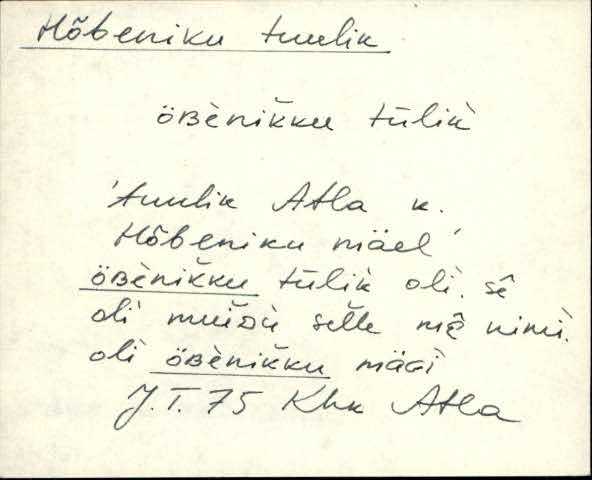 Hõbeniku tuulik
öʙèniǩku tūlik̀
'tuulik Atla k.
Hõbeniku mäel'
öʙèniǩku tūlik̀ oli. sê
oli muiᴅù selle mê nimi.
oli öʙèniǩku mäɢi
J.T. 75 Khk Atla